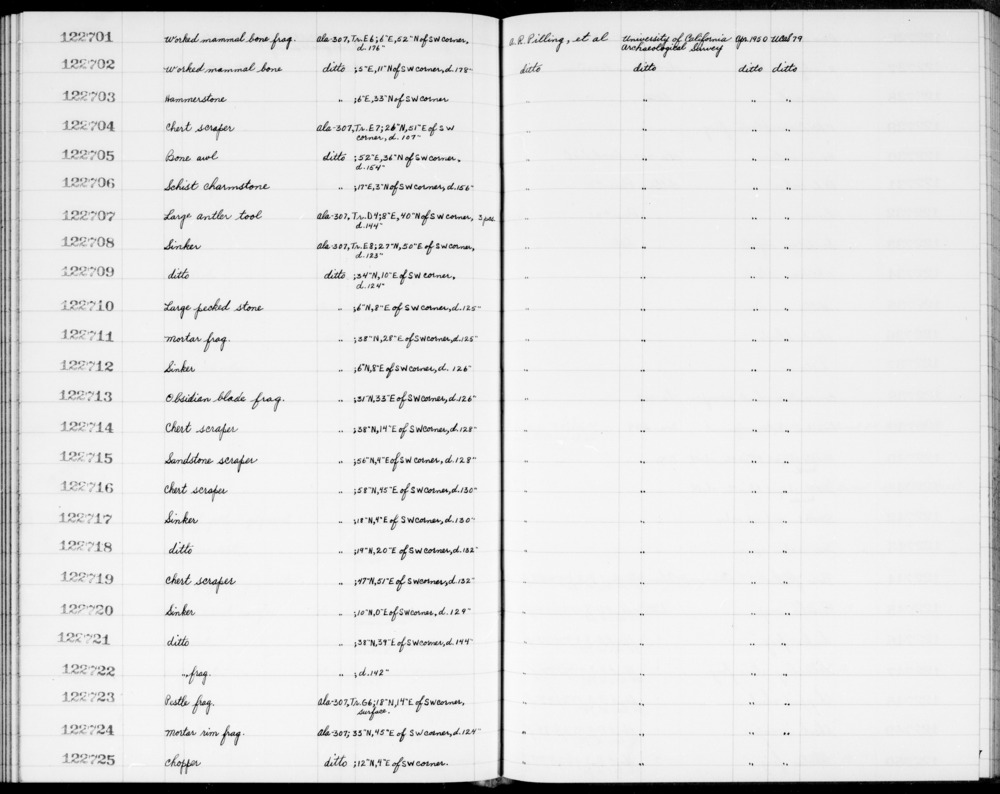 122701 Worked mammal bone frag. ala-307, Tr. E6; 6"E, 52"N of SW corner, d. 176" A.R. Pilling, et al University of California Archaeological Survey Apr. 1950 UCAS 79
122702 Worked mammal bone ditto ; 5"E, 11"N of SW corner, d. 178" ditto ditto ditto ditto
122703 Hammerstone " ; 6"E, 33"N of SW corner " " " "
122704 Chert scraper ala-307, Tr. E7; 26"N, 51"E of SW corner, d. 107" " " " "
122705 Bone awl ditto ; 52"E, 36"N of SW corner, d. 154" " " " "
122706 Schist charmstone " ; 17"E, 3"N of SW corner, d. 156" " " " "
122707 Large antler tool ala-307, Tr. D4; 8"E, 40"N of SW corner, 3 pcs. d. 144" " " " "
122708 Sinker ala-307, Tr. E8; 27"N, 50"E of SW corner, d. 123" " " " "
122709 ditto ditto ; 34"N, 10"E of SW corner, d. 124" " " " "
122710 Large pecked stone " ; 6"N, 8"E of SW corner, d. 125" " " " "
122711 Mortar frag. " ; 38"N, 28"E of SW corner, d. 125" " " " "
122712 Sinker " ; 6"N, 8"E of SW corner, d. 126" " " " "
122713 Obsidian blade frag. " ; 31"N, 33"E of SW corner, d. 126" " " " "
122714 Chert scraper " ; 38"N, 14"E of SW corner, d. 128" " " " "
122715 Sandstone scraper " ; 56"N, 4"E of SW corner, d. 128" " " " "
122716 Chert scraper " ; 58"N, 45"E of SW corner, d. 130" " " " "
122717 Sinker " ; 18"N, 4"E of SW corner, d. 130" " " " "
122718 ditto " ; 14"N, 20"E of SW corner, d. 132" " " " "
122719 Chert scraper " ; 47"N, 51"E of SW corner, d. 132" " " " "
122720 Sinker " ; 10"N, 0"E of SW corner, d. 129" " " " "
122721 ditto " ; 38"N, 39"E of SW corner, d. 144" " " " "
122722 " frag. " ; d. 142" " " " "
122723 Pestle frag. ala-307, Tr. G6; 18"N, 14"E of SW corner, surface. " " " "
122724 Mortar rim frag. ala-307; 35"N, 45"E of SW corner, d. 124" " " " "
122725 Chopper ditto ; 12"N, 4"E of SW corner. " " " "